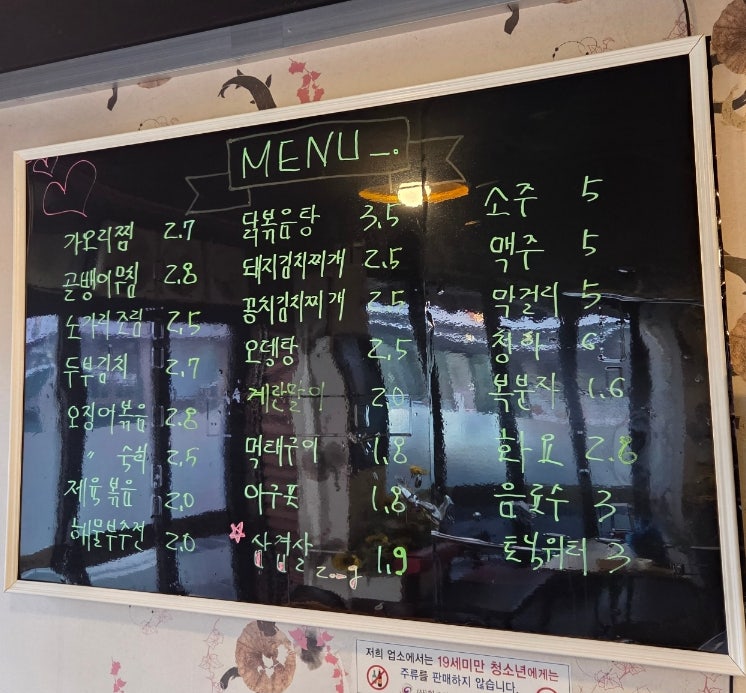 MENU
가오리찜 2.7
골뱅이무침 2.8
노가리조림 2.5
두부김치 2.7
오징어볶음 2.8
〃 숙회 2.5
제육볶음 2.0
해물부추전 2.0
닭볶음탕 3.5
돼지김치찌개 2.5
꽁치김치찌개 2.5
오뎅탕 2.5
계란말이 20
먹태구이 1.8
아구포 1.8
삼겹살 1.9
소주 5
맥주 5
막걸리 5
청하 6
복분자 1.6
화요 2.8
음료수 3
토닉워터 3
저희 업소에서는 19세미만 청소년에게는
주류를 판매하지 않습니다.